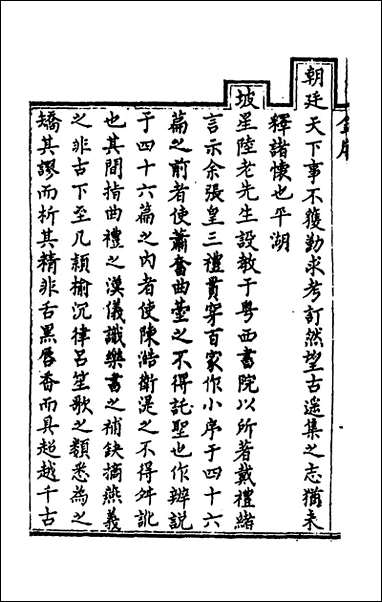 朝廷天下事不獲勤求考訂然望古遥集之志猶未
釋諸懷也平湖
坡星陸老先生設教于粤西書院以所著戴禮緒
言示余張皇三禮貫穿百家作小序于四十六
篇之前者使蕭奮曲臺之不得託聖也作辨説
于四十六篇之内者使陳澔衛湜之不得舛訛
也其間指曲禮之漢儀識樂書之補缺摘燕義
之非古下至几頴榆沉律呂笙歌之類悉為之
矯其謬而析其精非舌黒唇香而具超越千古